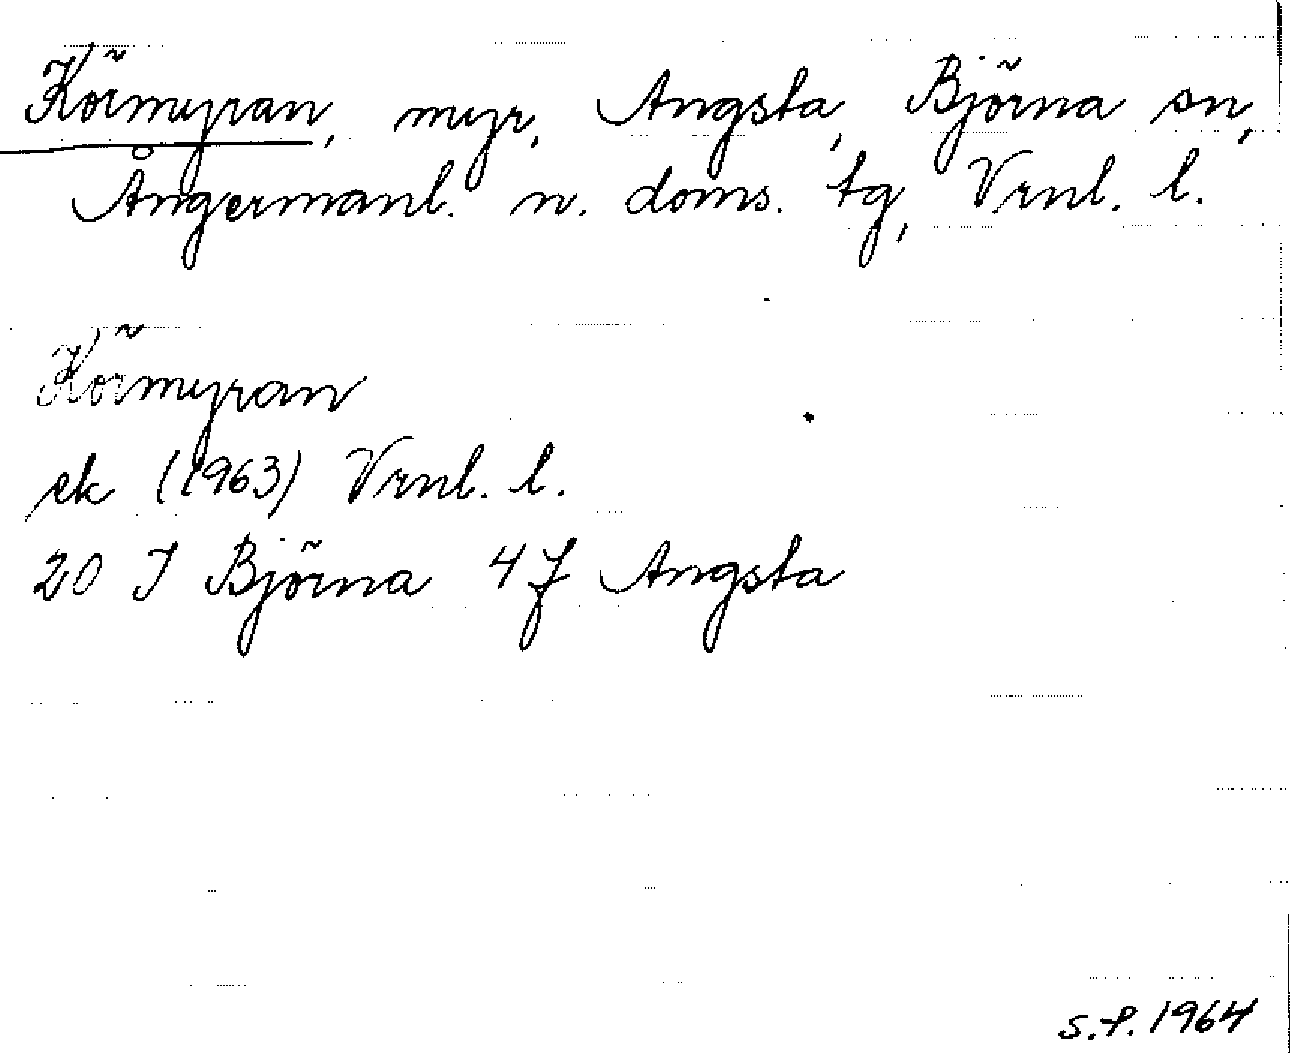 Körmyran, myr, Angsta, Björna sn,
Ångermanl. n. doms. tg, Vrnl. l.
Körmyran
ek (1963) Vrnl. l.
20 I Björna 4 f Angsta
S.F. 1964